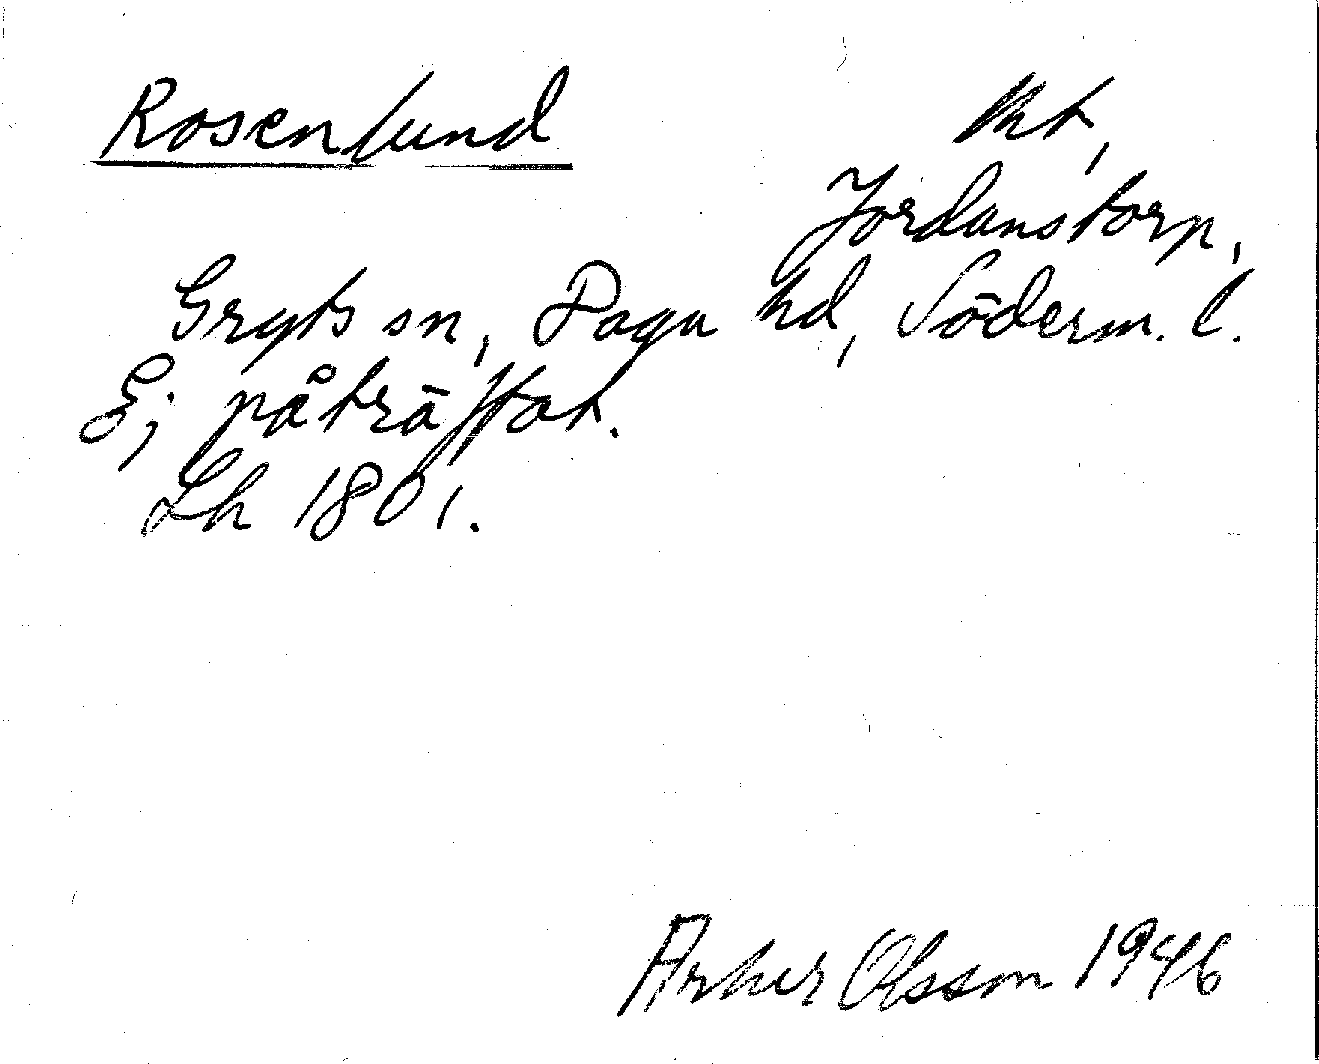 Rosenlund ht,
Jordanstorp,
Gryts sn, Daga hd, Söderm. l.
Ej påträffat.
Lh 1801.
Arher Olsson 1946